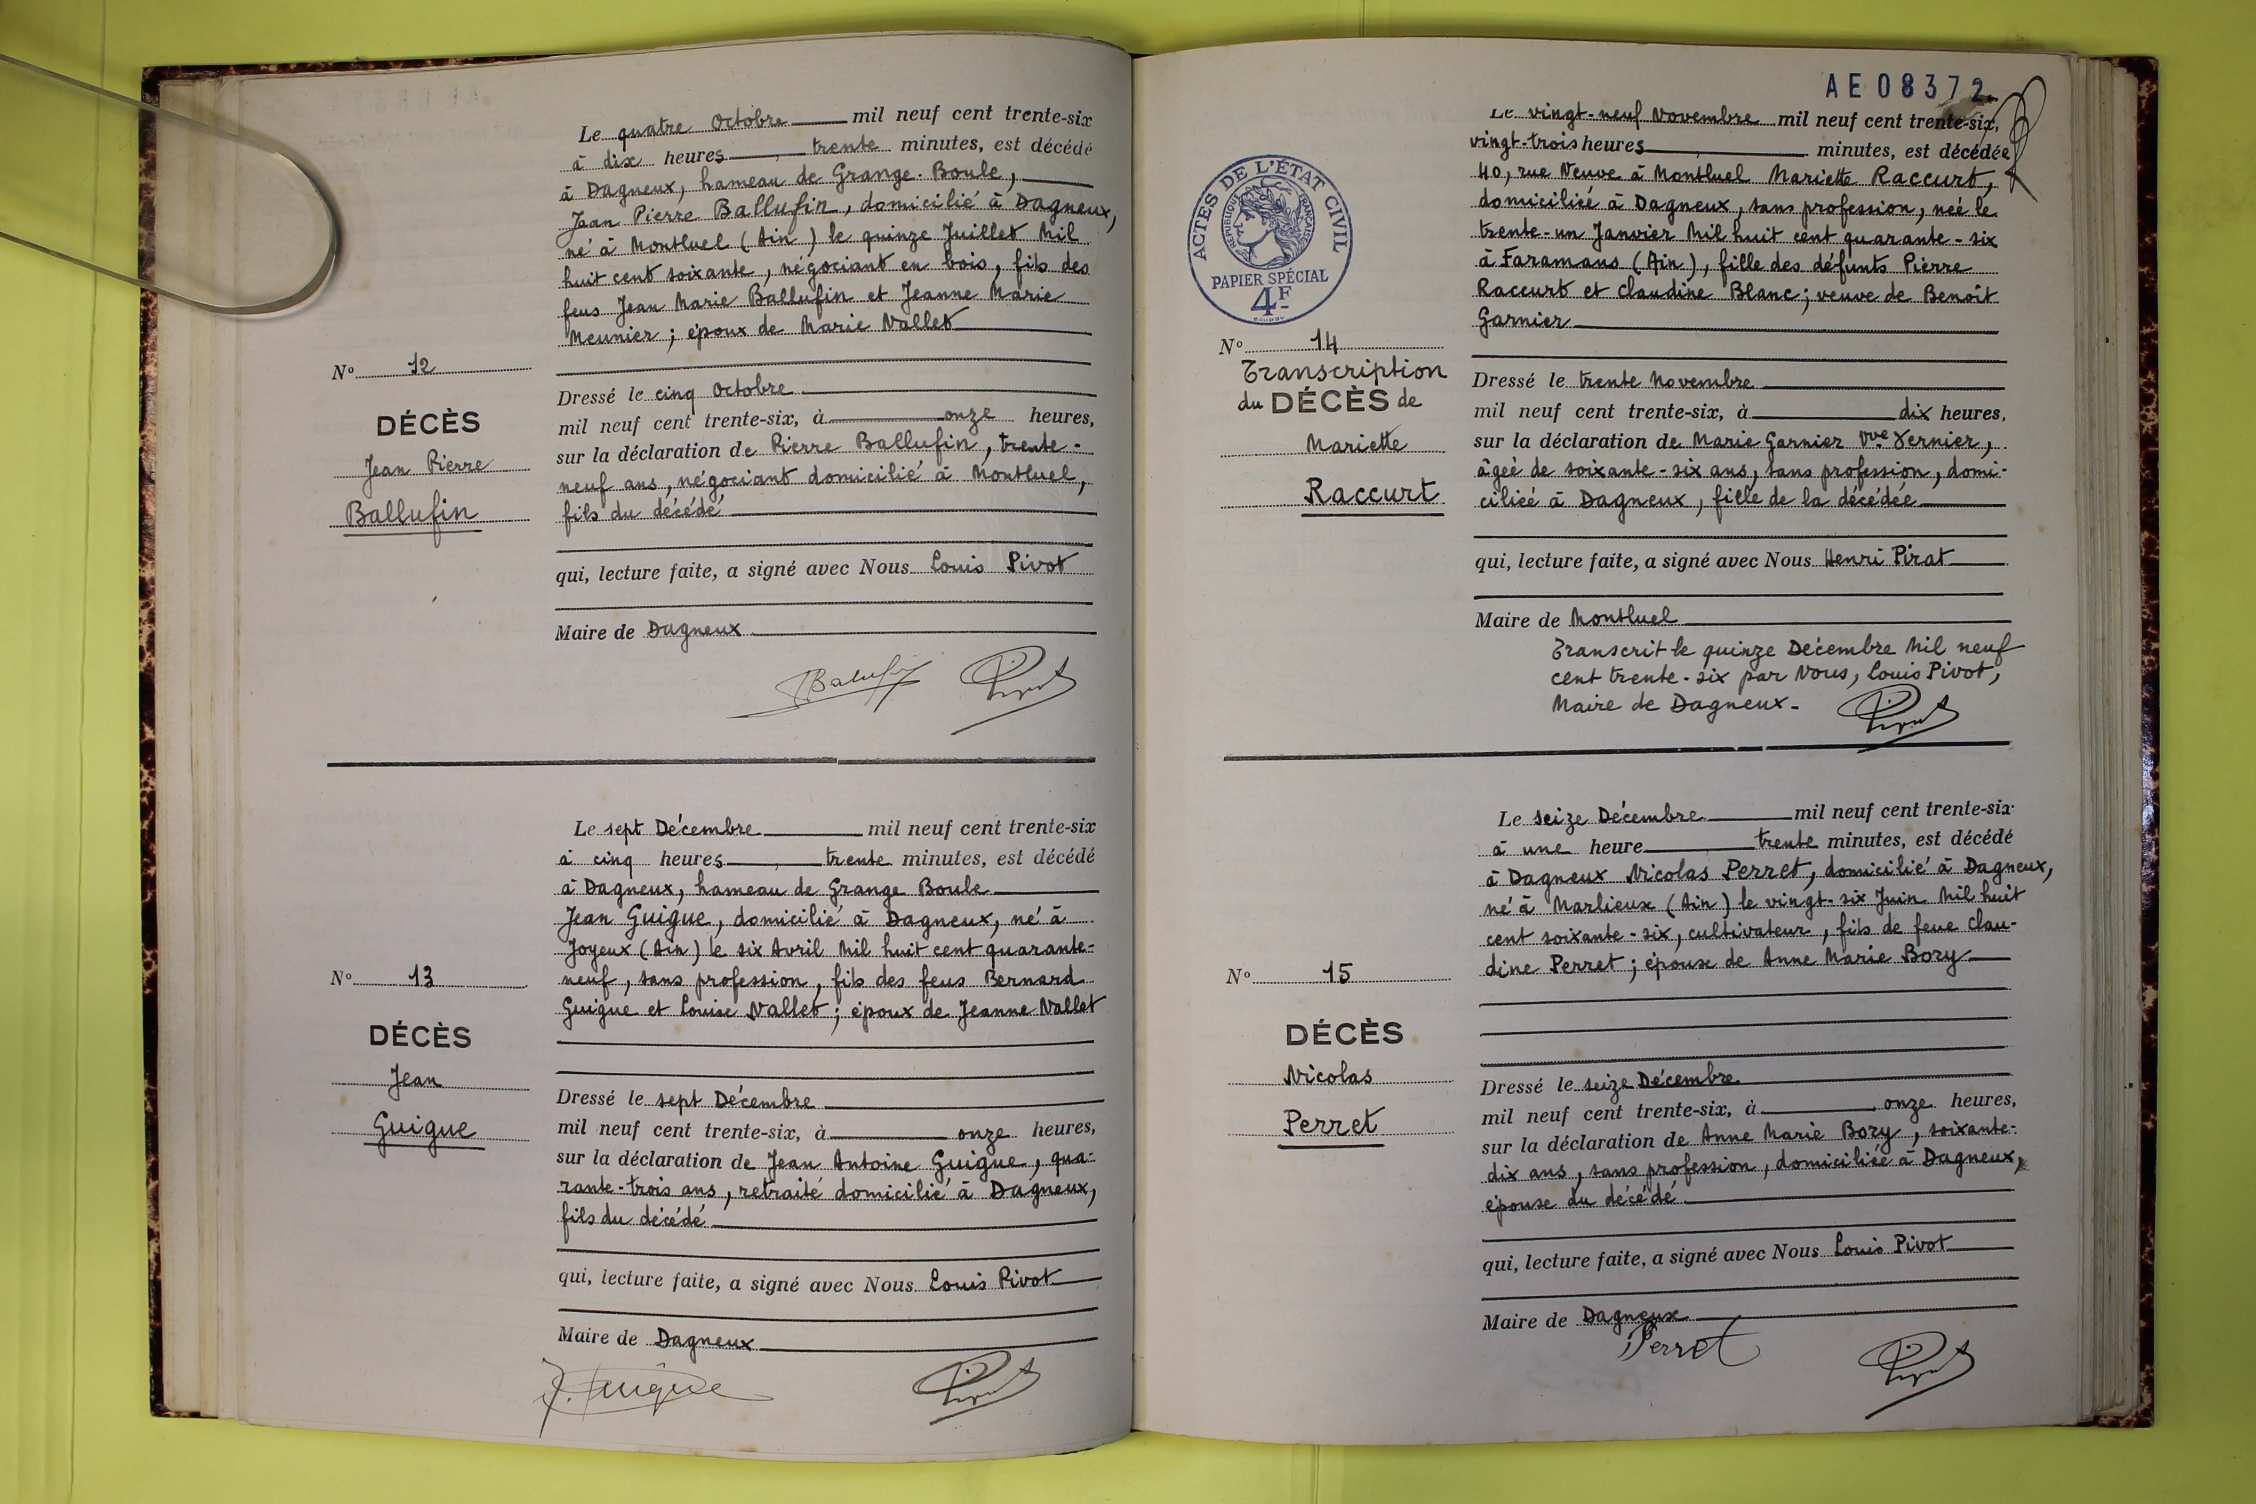 Le quatre Octobre mil neuf cent trente-six
à dix heures, trente minutes, est décédé
à Dagneux, hameau de Grange-Boule,
Jean Pierre Ballufin, domicilié à Dagneux,
né à Montluel (Ain) le quinze Juillet Mil
huit cent soixante, négociant en bois, fils des
feus Jean Marie Ballufin et Jeanne Marie
Meunier ; époux de Marie Vallet
Nº 12
DÉCÈS
Jean Pierre
Ballufin
Dressé le cinq Octobre
mil neuf cent trente-six, à onze heures,
sur la déclaration de Pierre Ballufin, trente-
neuf ans, négociant domicilié à Montluel,
fils du décédé
qui, lecture faite, a signé avec Nous Louis Pivot
Maire de Dagneux
Pivot
Le sept Décembre mil neuf cent trente-six
à cinq heures, trente minutes, est décédé
à Dagneux, hameau de Grange Boule
Jean Guigue, domicilié à Dagneux, né à
Joyeux (Ain) le six Avril Mil huit cent quarante-
neuf, sans profession, fils des feus Bernard
Guigue et Louise Vallet ; époux de Jeanne Vallet
Nº 13
DÉCÈS
Jean
Guigue
Dressé le sept Décembre
mil neuf cent trente-six, à onze heures,
sur la déclaration de Jean Antoine Guigue, qua-
rante-trois ans, retraité domicilié à Dagneux,
fils du décédé
qui, lecture faite, a signé avec Nous Louis Pivot
Maire de Dagneux
J. Guigue Pivot
AE08372
ACTES DE L'ÉTAT CIVIL
RÉPUBLIQUE FRANÇAISE
PAPIER SPÉCIAL
4F
Le vingt-neuf Novembre mil neuf cent trente-six,
vingt-trois heures, minutes, est décédée
40, rue Neuve à Montluel Mariette Raccurt,
domiciliée à Dagneux, sans profession, née le
trente-un Janvier Mil huit cent quarante-six
à Faramans (Ain), fille des défunts Pierre
Raccurt et Claudine Blanc ; veuve de Benoît
Garnier
Nº 14
Transcription
du DÉCÈS de
Mariette
Raccurt
Dressé le trente Novembre
mil neuf cent trente-six, à dix heures,
sur la déclaration de Marie Garnier Vve Vernier,
âgée de soixante-six ans, sans profession, domi-
ciliée à Dagneux, fille de la décédée
qui, lecture faite, a signé avec Nous Henri Pirat
Maire de Montluel
Transcrit le quinze Décembre Mil neuf
cent trente-six par Nous, Louis Pivot,
Maire de Dagneux.
Pivot
Le seize Décembre mil neuf cent trente-six
à une heure, trente minutes, est décédé
à Dagneux Nicolas Perret, domicilié à Dagneux,
né à Marlieux (Ain) le vingt-six Juin Mil huit
cent soixante-six, cultivateur, fils de feue Clau-
dine Perret ; épouse de Anne Marie Bozy
Nº 15
DÉCÈS
Nicolas
Perret
Dressé le seize Décembre
mil neuf cent trente-six, à onze heures,
sur la déclaration de Anne Marie Bozy, soixante-
dix ans, sans profession, domiciliée à Dagneux,
épouse du décédé
qui, lecture faite, a signé avec Nous Louis Pivot
Maire de Dagneux
Perret Pivot